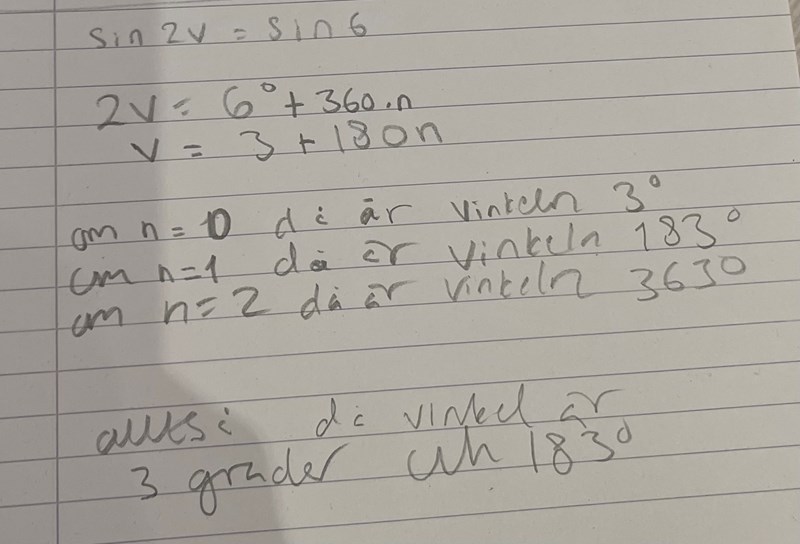 sin 2v = sin 6
2v = 6° + 360·n
v = 3 + 180n
om n = 0 då är vinkeln 3°
om n=1 då är vinkeln 183°
om n = 2 då är vinkeln 363°
alltså då vinkel är
3 grader och 183°